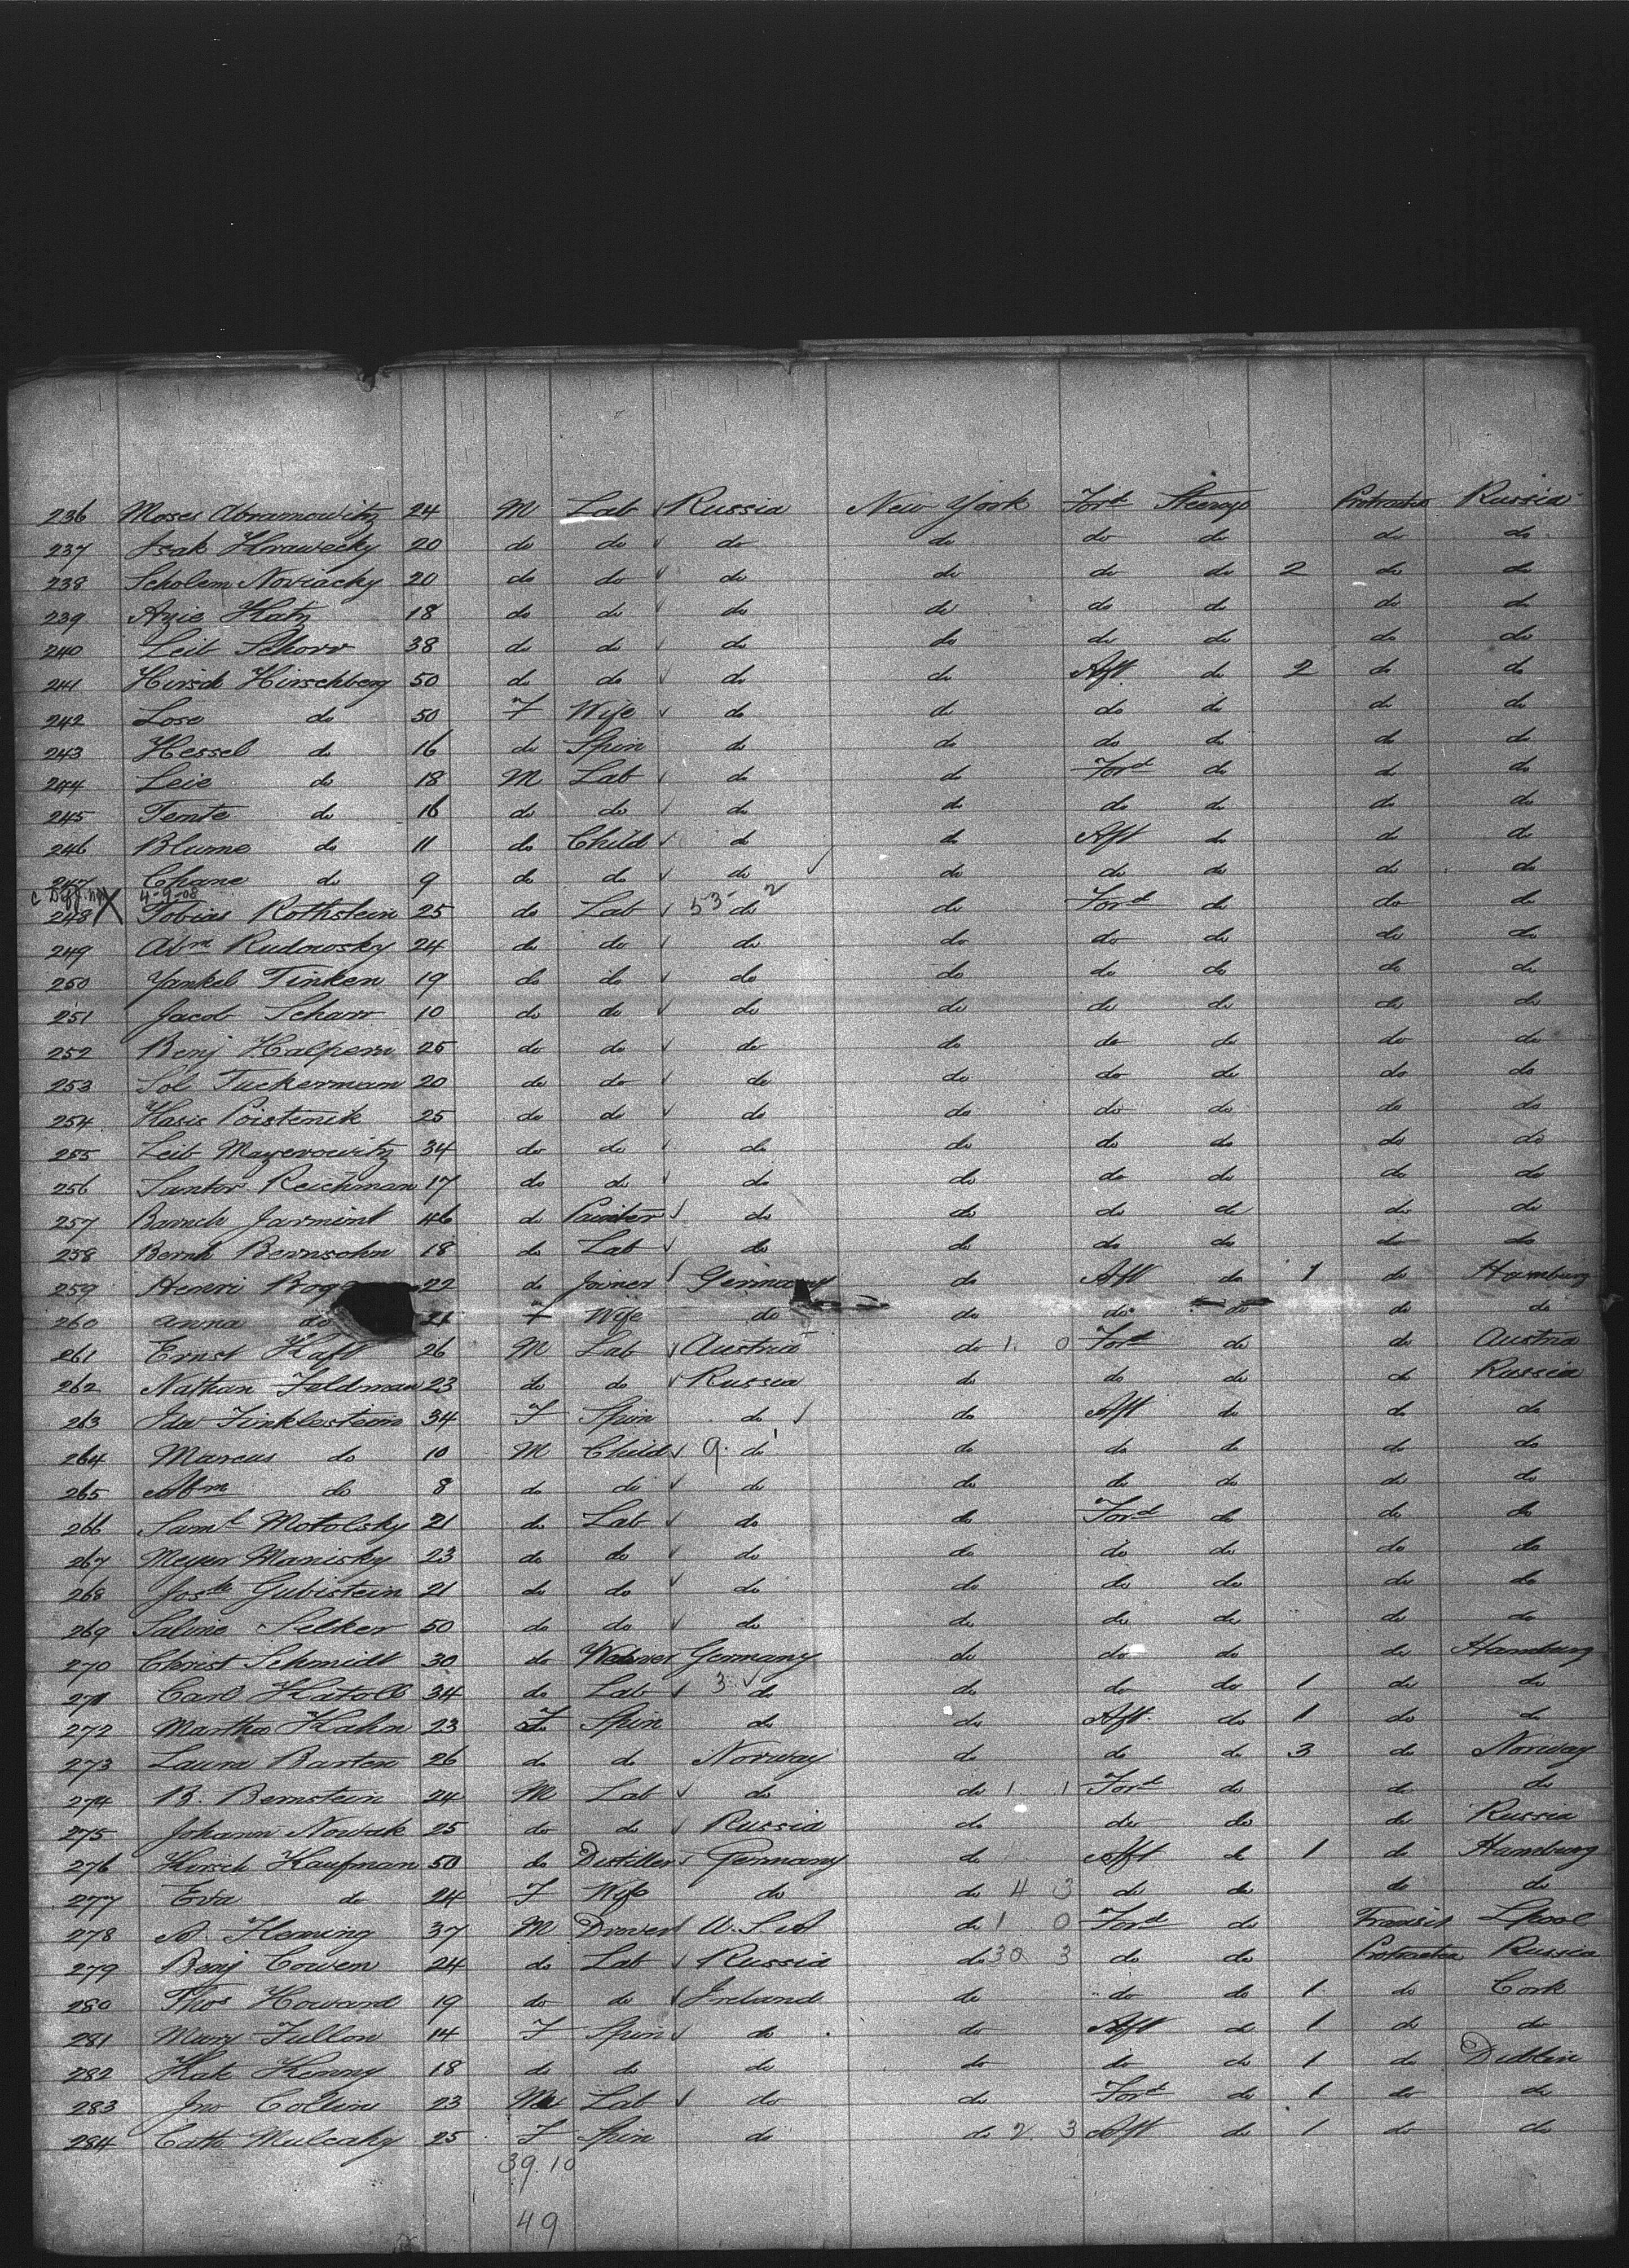 236 Moses Abramowitz 24 M Lab Russia New York Ford Steerage Protracted Russia
237 Isak Krawecky 20 do do do do do do do do
238 Scholem Noviacky 20 do do do do do do 2 do do
239 Azie Katz 18 do do do do do do do do
240 Leib Schorr 38 do do do do do do do do
241 Hirsch Hirschberg 50 do do do do Aft do 2 do do
242 Lose do 50 F Wife do do do do do do
243 Hessel do 16 do Spin do do do do do do
244 Leie do 18 M Lab do do Ford do do do
245 Tente do 16 do do do do do do do do
246 Blume do 11 do Child do do Aft do do do
247 Chane do 9 do do do do do do do do
4-9-08
248 X Tobias Rothstein 25 do Lab 53 do 2 do Ford do do do
249 Abm Rudowsky 24 do do do do do do do do
250 Yankel Tinken 19 do do do do do do do do
251 Jacob Scharr 10 do do do do do do do do
252 Benj Halpern 25 do do do do do do do do
253 Sol Tuckerman 20 do do do do do do do do
254 Hasis Poistenik 25 do do do do do do do do
255 Leib Mayerowitz 34 do do do do do do do do
256 Santor Reichman 17 do do do do do do do do
257 Baruch Jarmint 46 do Painter do do do do do do
258 Bernh Bernsohn 18 do Lab do do do do do do
259 Henri Bog 22 do Joiner Germany do Aft do 1 do Hamburg
260 Anna do 21 F Wife do do do do do do
261 Ernst Kaft 26 M Lab Austria do 1 0 Ford do do Austria
262 Nathan Feldman 23 do do Russia do do do do Russia
263 Ida Finklestein 34 F Spin do do Aft do do do
264 Marcus do 10 M Child 9 do 1 do do do do do
265 Abm do 8 do do do do do do do do
266 Saml Motolsky 21 do Lab do do Ford do do do
267 Meyer Manisky 23 do do do do do do do do
268 Josh Gubistein 21 do do do do do do do do
269 Saline Selker 50 do do do do do do do do
270 Christ Schmidt 30 do Weaver Germany do do do do Hamburg
271 Carl Katoll 34 do Lab 3 do do do do 1 do do
272 Martha Kahn 23 F Spin do do Aft do 1 do do
273 Laura Barten 26 do do Norway do do do 3 do Norway
274 B. Bernstein 24 M Lab do do 1 1 Ford do do do
275 Johann Nowak 25 do do Russia do do do do Russia
276 Hirsch Kaufman 50 do Distiller Germany do Aft do 1 do Hamburg
277 Eva do 24 F Wife do do 4 3 do do do do
278 A. Fleming 37 M Drover U.S.A do 1 0 Ford do Transit Lpool
279 Benj Cowen 24 do Lab Russia do 30 3 do do Protracted Russia
280 Thos Howard 19 do do Ireland do do do 1 do Cork
281 Mary Fullon 14 F Spin do do Aft do 1 do do
282 Kate Kenny 18 do do do do do do 1 do Dublin
283 Jno Collins 23 M Lab do do Ford do 1 do do
284 Cath Mulcahy 25 F Spin do do 2 3 Aft do 1 do do
39.10
49